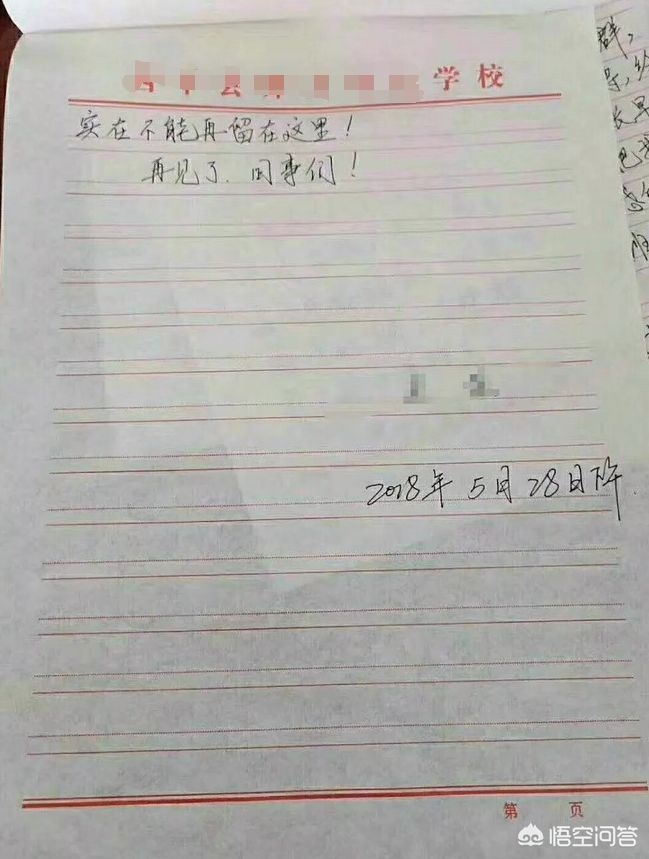 学校
实在不能再留在这里!
再见了.同事们!
2018年5月28日下午
第 页
悟空问答